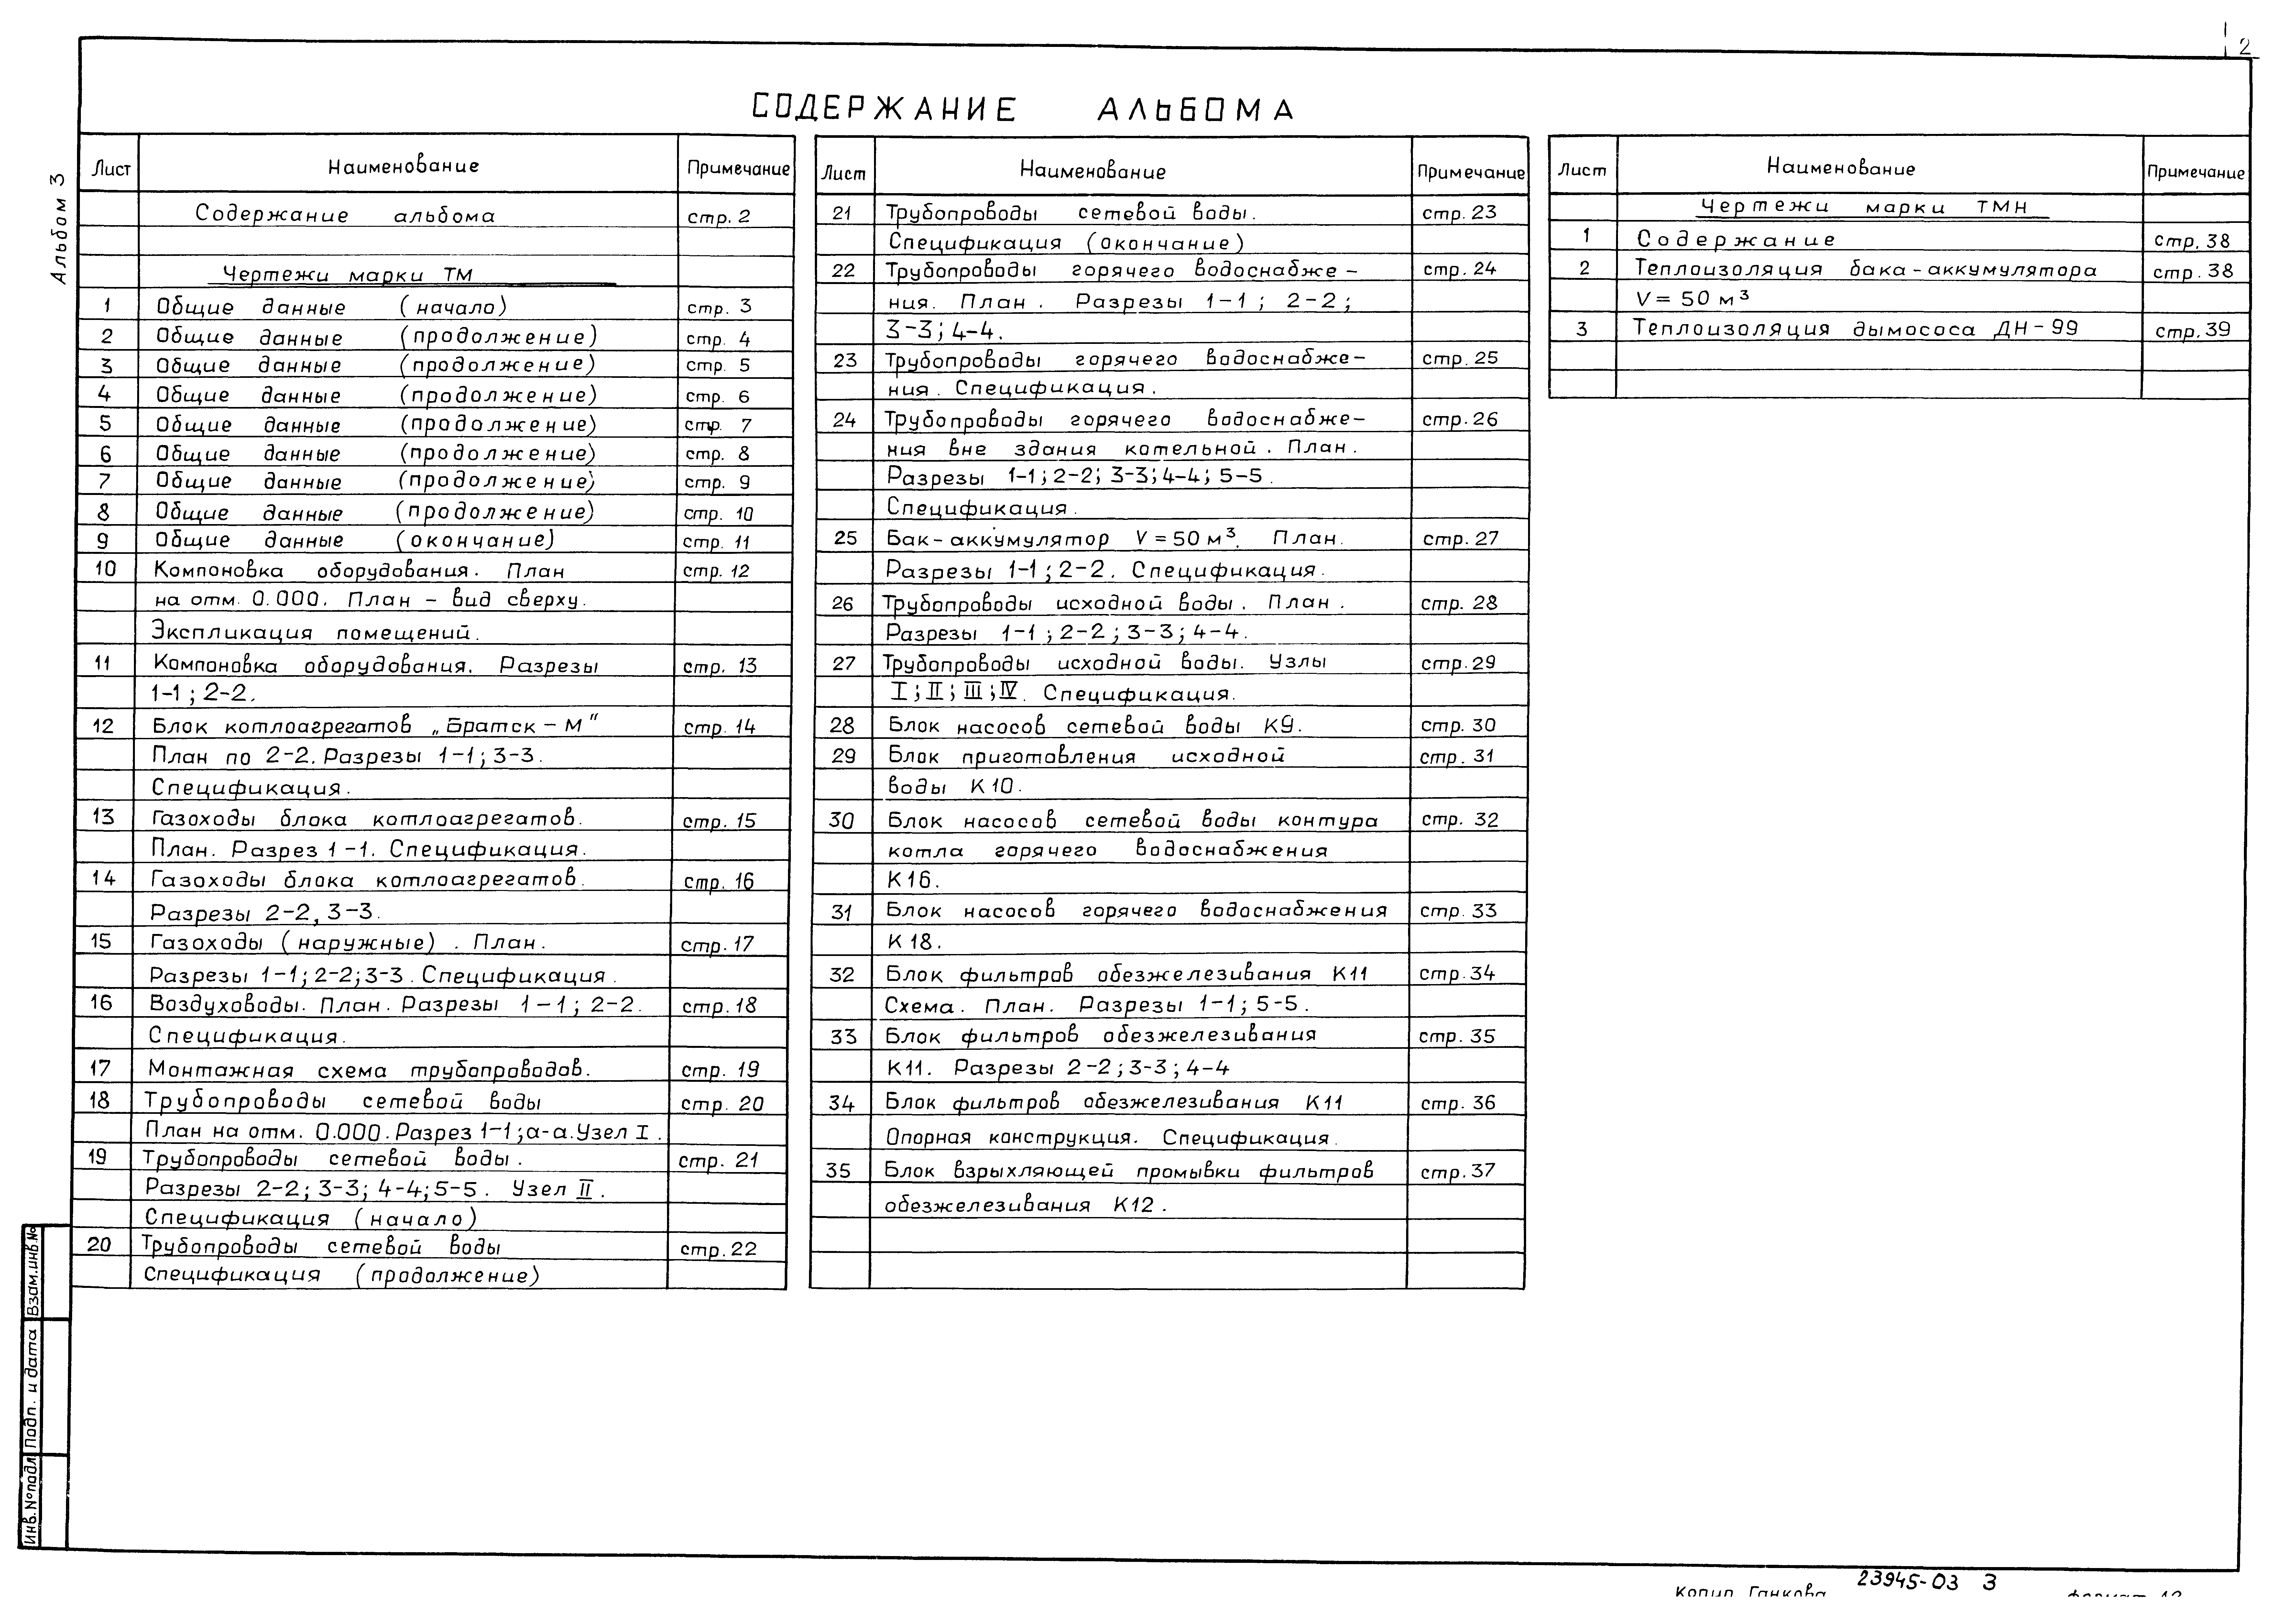 2
СОДЕРЖАНИЕ АЛЬБОМА
Альбом 3
Лист Наименование Примечание
Содержание альбома стр. 2
Чертежи марки ТМ
1 Общие данные (начало) стр. 3
2 Общие данные (продолжение) стр. 4
3 Общие данные (продолжение) стр. 5
4 Общие данные (продолжение) стр. 6
5 Общие данные (продолжение) стр. 7
6 Общие данные (продолжение) стр. 8
7 Общие данные (продолжение) стр. 9
8 Общие данные (продолжение) стр. 10
9 Общие данные (окончание) стр. 11
10 Компоновка оборудования. План стр. 12
на отм. 0.000. План - вид сверху.
Экспликация помещений.
11 Компоновка оборудования. Разрезы стр. 13
1-1; 2-2.
12 Блок котлоагрегатов „Братск - М" стр. 14
План по 2-2. Разрезы 1-1; 3-3.
Спецификация.
13 Газоходы блока котлоагрегатов. стр. 15
План. Разрез 1-1. Спецификация.
14 Газоходы блока котлоагрегатов. стр. 16
Разрезы 2-2, 3-3.
15 Газоходы (наружные). План. стр. 17
Разрезы 1-1; 2-2; 3-3. Спецификация.
16 Воздуховоды. План. Разрезы 1-1; 2-2. стр. 18
Спецификация.
17 Монтажная схема трубопроводов. стр. 19
18 Трубопроводы сетевой воды стр. 20
План на отм. 0.000. Разрез 1-1; а-а. Узел I.
19 Трубопроводы сетевой воды. стр. 21
Разрезы 2-2; 3-3; 4-4; 5-5. Узел II.
Спецификация (начало)
20 Трубопроводы сетевой воды стр. 22
Спецификация (продолжение)
Лист Наименование Примечание
21 Трубопроводы сетевой воды. стр. 23
Спецификация (окончание)
22 Трубопроводы горячего водоснабже- стр. 24
ния. План. Разрезы 1-1; 2-2;
3-3; 4-4.
23 Трубопроводы горячего водоснабже- стр. 25
ния. Спецификация.
24 Трубопроводы горячего водоснабже- стр. 26
ния вне здания котельной. План.
Разрезы 1-1; 2-2; 3-3; 4-4; 5-5.
Спецификация.
25 Бак-аккумулятор V = 50 м³. План. стр. 27
Разрезы 1-1; 2-2. Спецификация.
26 Трубопроводы исходной воды. План. стр. 28
Разрезы 1-1; 2-2; 3-3; 4-4.
27 Трубопроводы исходной воды. Узлы стр. 29
I; II; III; IV. Спецификация.
28 Блок насосов сетевой воды К9. стр. 30
29 Блок приготовления исходной стр. 31
воды К10.
30 Блок насосов сетевой воды контура стр. 32
котла горячего водоснабжения
К16.
31 Блок насосов горячего водоснабжения стр. 33
К18.
32 Блок фильтров обезжелезивания К11 стр. 34
Схема. План. Разрезы 1-1; 5-5.
33 Блок фильтров обезжелезивания стр. 35
К11. Разрезы 2-2; 3-3; 4-4
34 Блок фильтров обезжелезивания К11 стр. 36
Опорная конструкция. Спецификация.
35 Блок взрыхляющей промывки фильтров стр. 37
обезжелезивания К12.
Лист Наименование Примечание
Чертежи марки ТМН
1 Содержание стр. 38
2 Теплоизоляция бака-аккумулятора стр. 38
V = 50 м³
3 Теплоизоляция дымососа ДН-99 стр. 39
Взам.инв.№
Подп. и дата
Инв.№подл
Копир. Ганкова 23945-03 3 формат 12